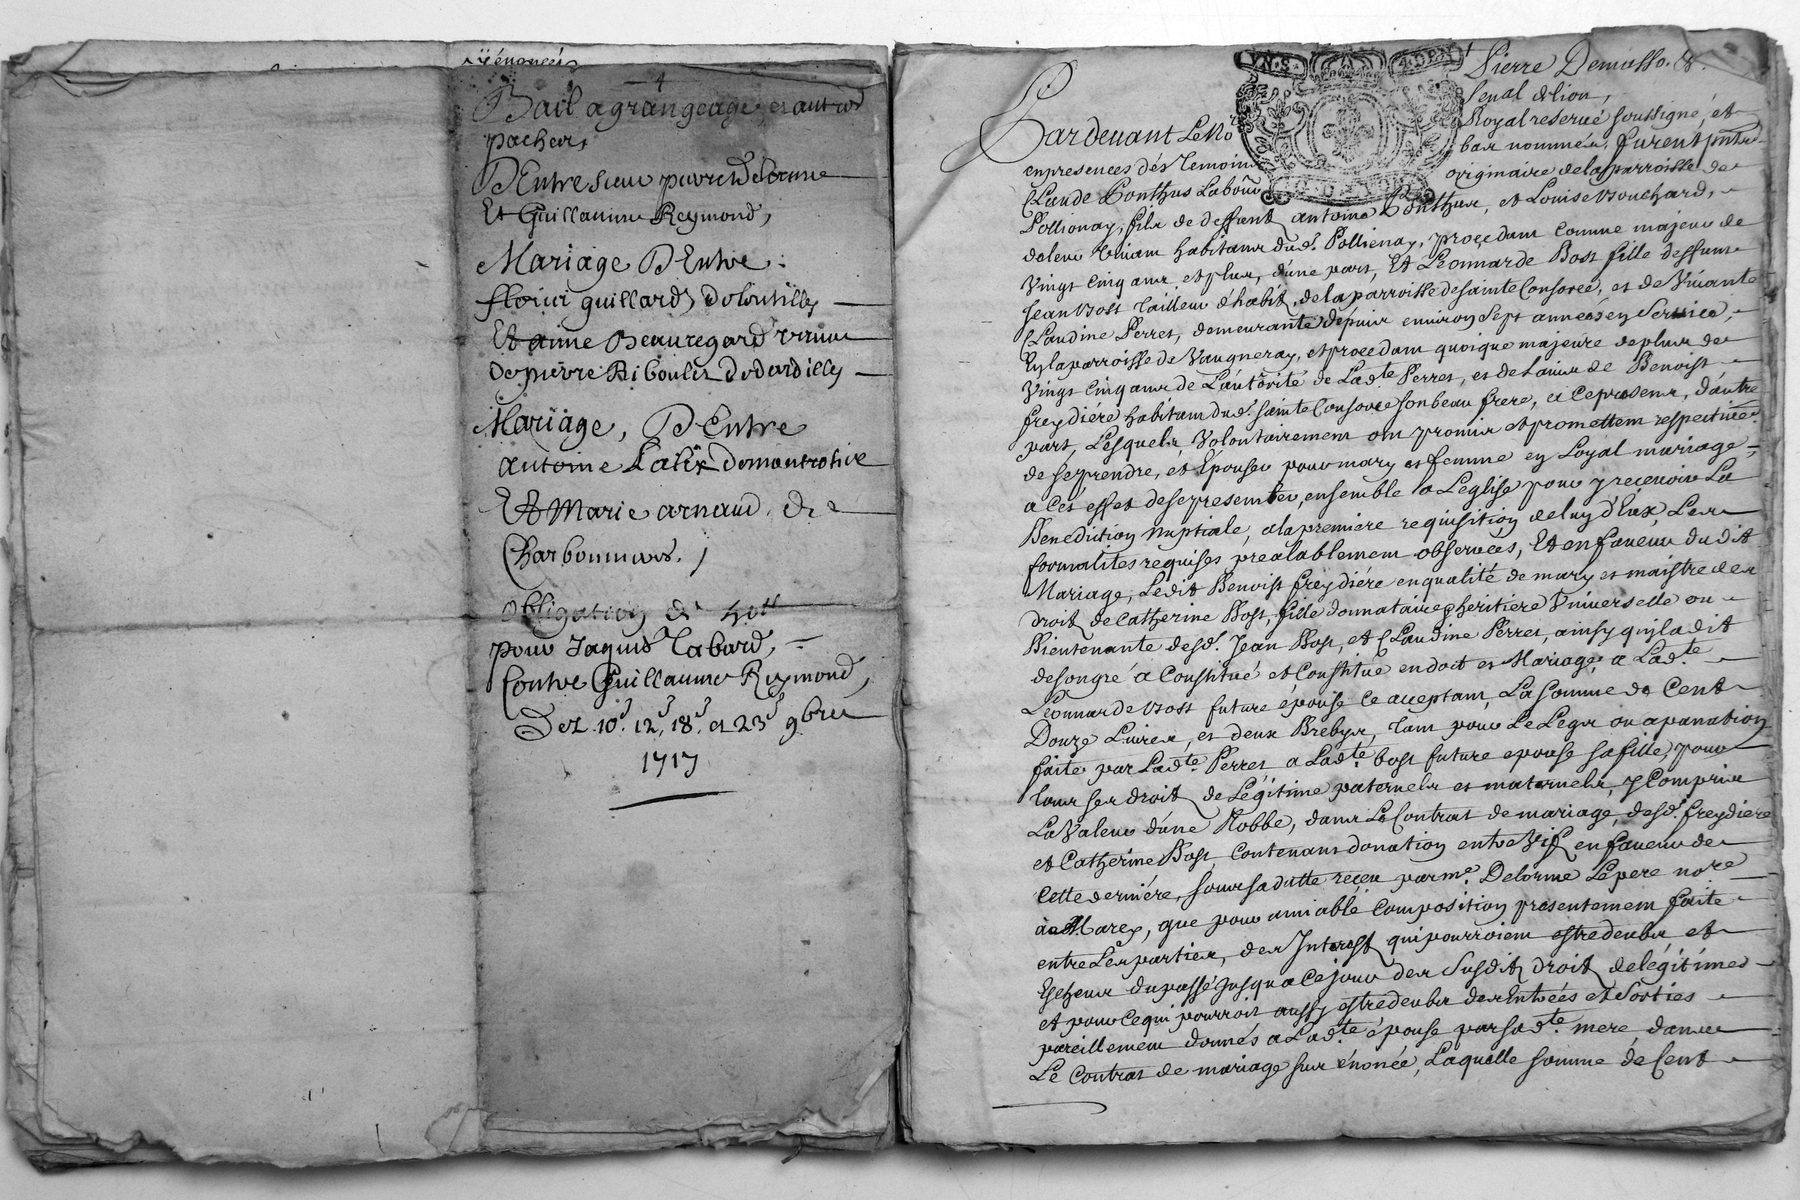 ÿ énoncés
4
Bail a grangeage, et autres
pacher,
D'Entre sieur pierre Delorme
Et Guillaume Reymond,
Mariage D'Entre
fleuri guillard, de loutilly
Et anne Beauregard veuve
De pierre Riboulet de dardilly
Mariage, D'Entre
antoine Latix de montrotier
Et Marie arnaud, de
Charbonnieres,
obligation de 40tt
pour Jaques Tabard,
Contre Guillaume Reymond,
Des. 10e. 12e, 18e. et 23e 9bre
1717
VN. S 4. DEN
GEN. D. LYON
Pierre Demusso. &.
Senal de lion,
Pardevant Le No.re Royal reservé soussigné, et
en presences dés Temoins bas nommés, furent pnts
Claude Ponthus Labour originaire de la parroisse de
Pollionay, fils de deffunt antoine Ponthus, et Louise Bouchard,
de leur vivant habitans dud. Pollienay, procedant comme majeur de
Vingt cinq ans, et plus, d'une part, Et Leonnarde Bost fille deffunt
Jean Bost Tailleur d'habit, de la parroisse de sainte Consorce, et de Vivante
Claudine Perret, demeurante depuis environ sept années en service,
En la parroisse de Vaugneray, et procedant quoique majeure de plus de
Vingt cinq ans de L'autorité de Lad.te Perret, et de L'avis de Benoist
freydiére habitant dud. sainte Consorce son beau frere, ici present, d'autre
part, Lesquels Volontairement ont promis et promettent respectivet
de se prendre, et Épouser pour mary et femme en Loyal mariage,
a Cét effet de se presenter ensemble a L'eglise pour y recevoir La
Benediction nuptiale, a la premiere requisition de L'uy d'Eux, Les
formalités requises prealablement observées, Et en faveur du dit
Mariage, Ledit Benoist freydiére en qualité de mary et maistre des
droits de Catherine Bost, fille donnataire et heritiere Vniverselle ou
Bientenante desd. Jean Bost, et Claudine Perret, ainsy qu'il a dit
de son gré a Constitué et Constitue en dot et Mariage, a Lad.te
Leonnarde Bost future épouse ce acceptant, La somme de Cent
Douze Livres, et deux Brebys, tant pour Le Legs ou apanation
faite par Lad.te Perret a Lad.te bost future epouse sa fille, pour
tous ses droits de Légitime paternels et maternels, y compris
La Valeur d'une Robbe, dans Le Contrat de mariage, desd. freydiere
et Catherine Bost, Contenant donation entre Vifs en faveur de
Cette derniére, sous sa datte reçeu par me. Delorme Le pere no.re
à Marcy, que pour amiable Composition presentement faite
entre Les parties, des Interest qui pourroient estre deubs et
Echeus du passé jusqu'a ce jour des Susdits droits de légitimes
et pour ce qui pourroit aussy estre deubs des Entrées et Sorties
pareillement donnés a Lad.te épouse par sad.te mere dans
Le Contrat de mariage sus énoncé, Laquelle somme de Cent